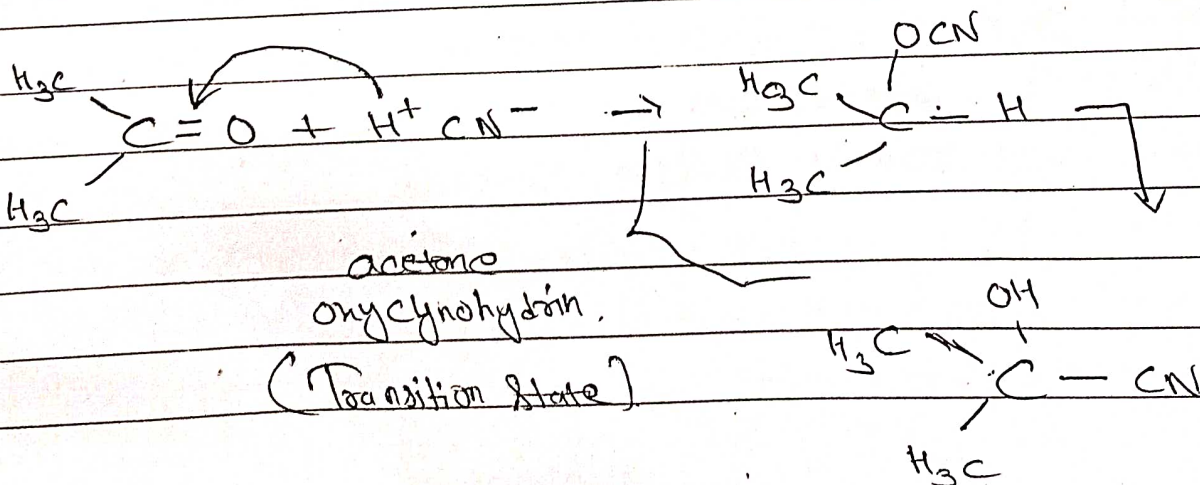 OCN
H₃C H₃C
C = O + H⁺ CN⁻ → C — H
H₃C H₃C
acetone
oxycynohydrin.
(Transition State)
OH
H₃C
C — CN
H₃C